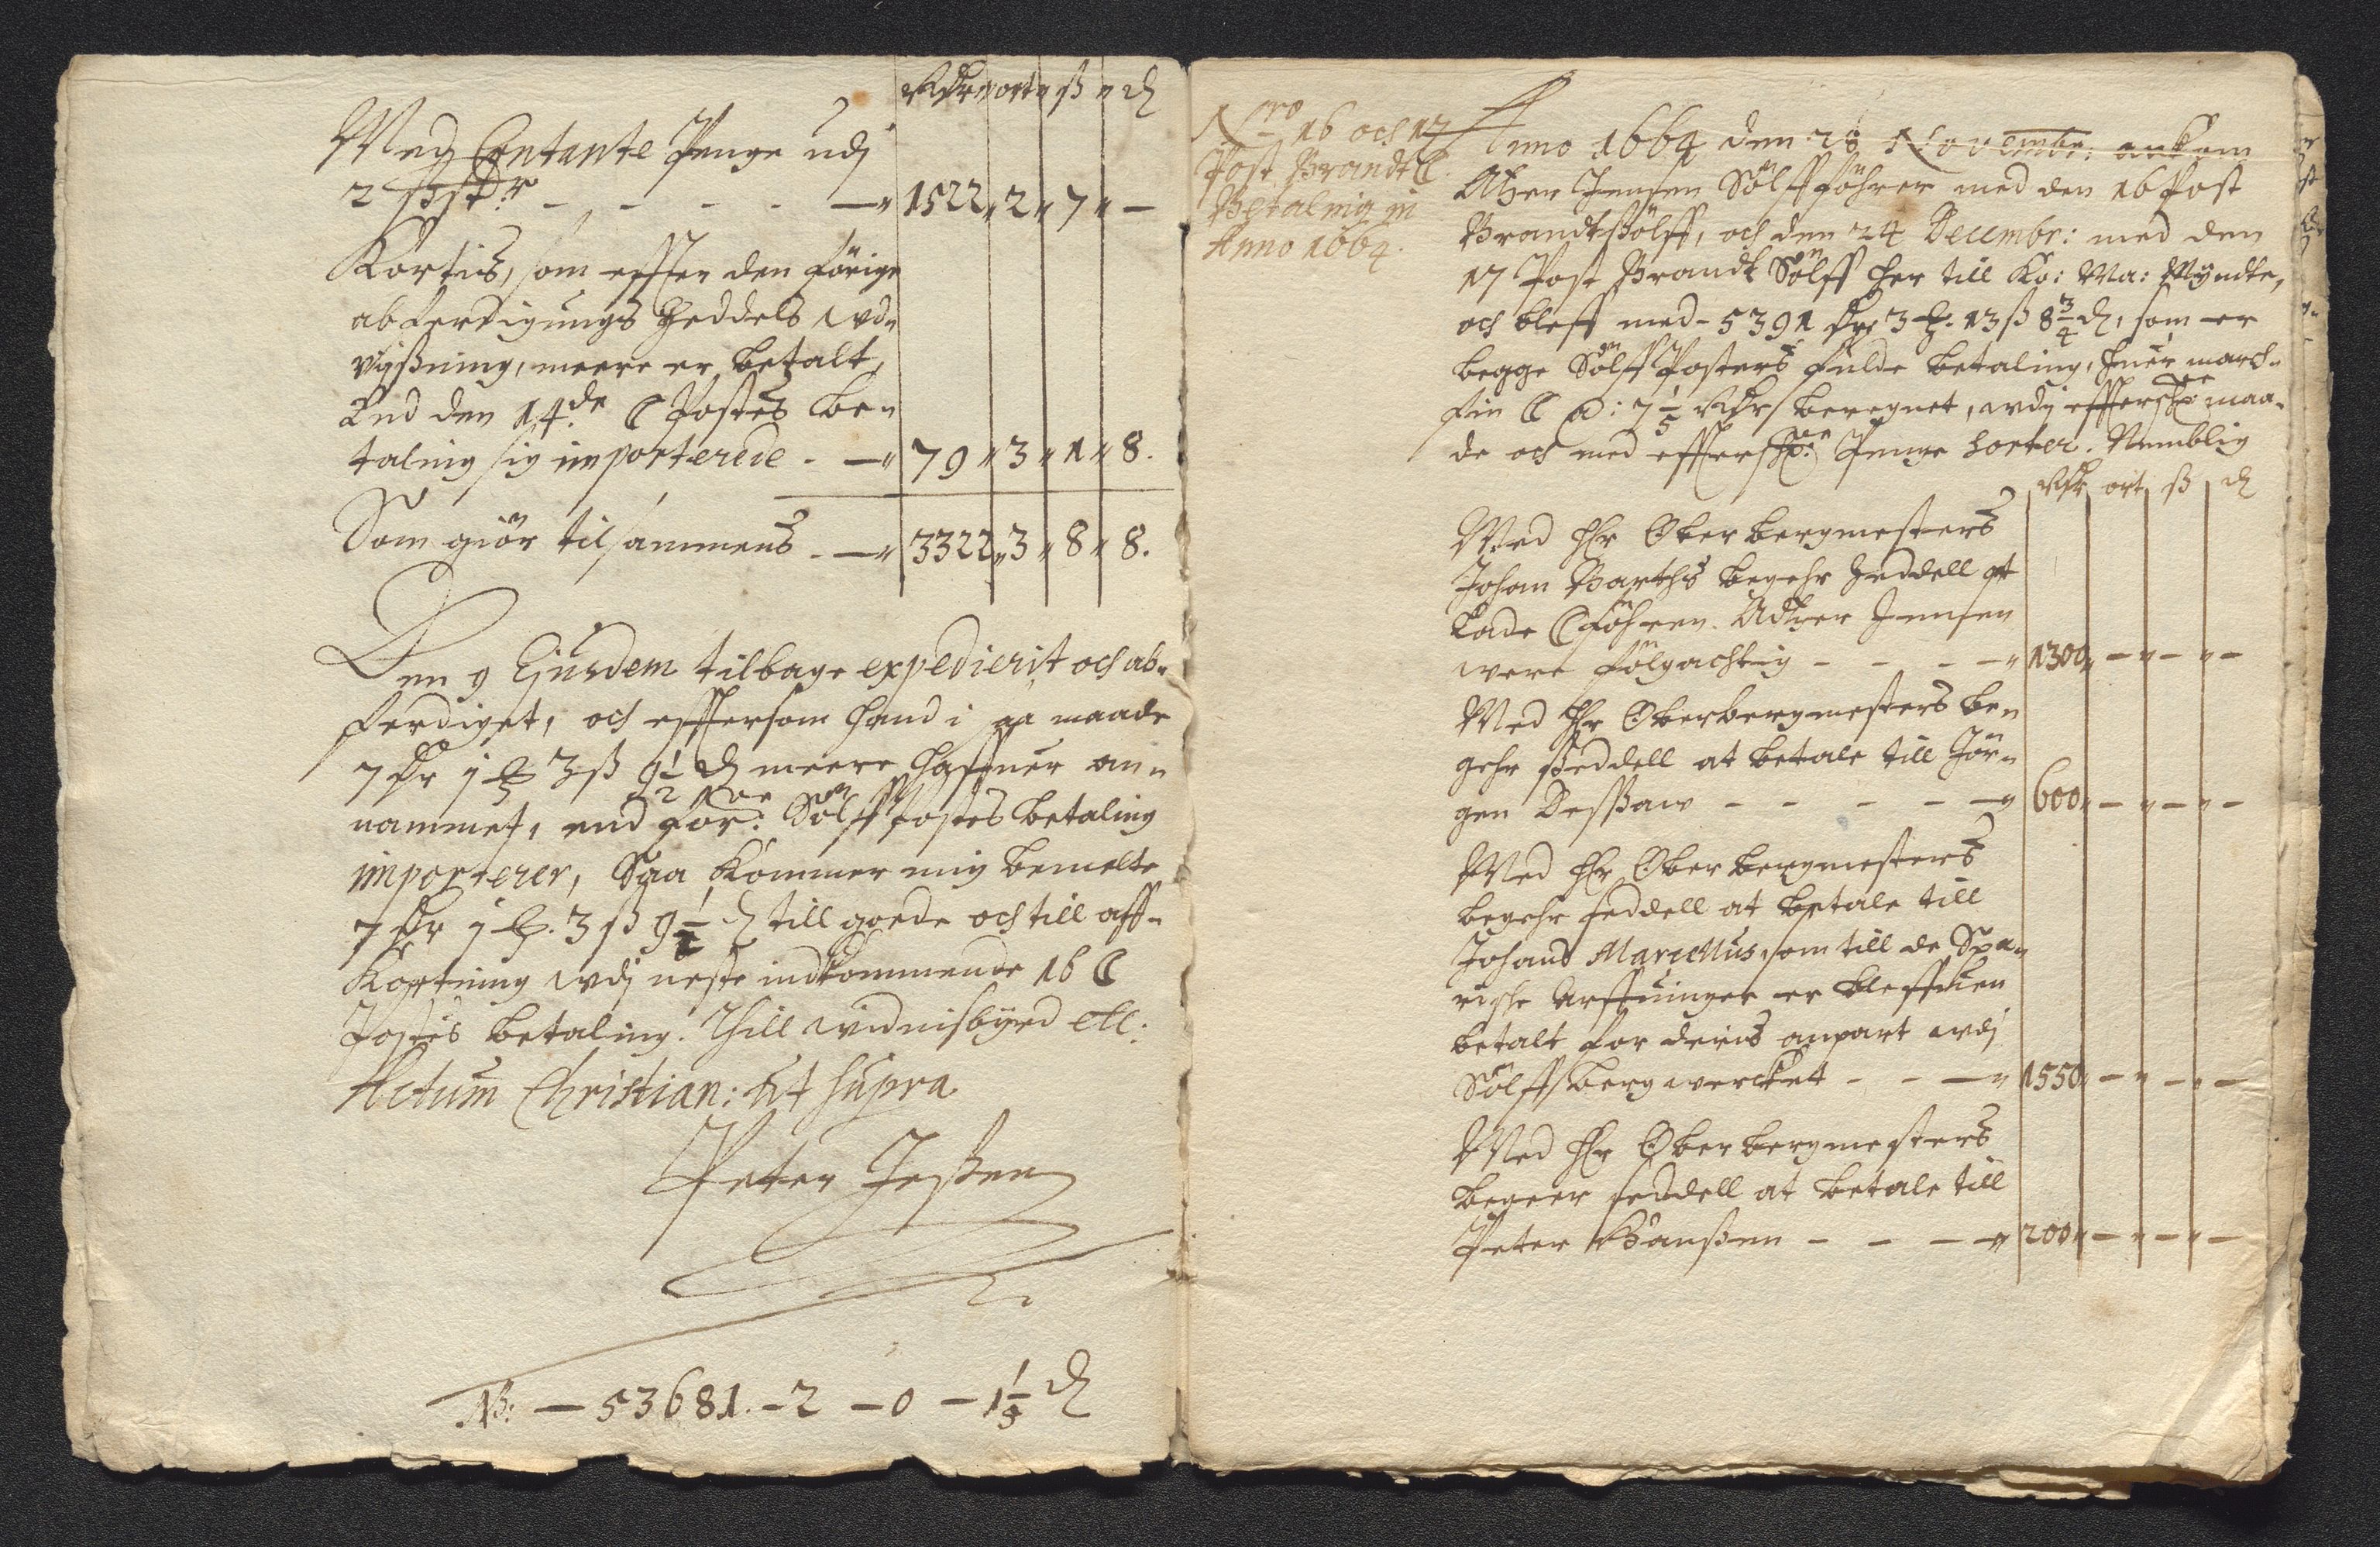 Rdr ort ß ₰
Med Contante Penge udj
2 ßstr - - - - - 1522 2 7 -
Kortis, som effter den förige
abferdigungs Zeddels wd-
vijßning, meere er betalt,
End den 14de ☾ Postes be-
taling sig importerede - - 79 3 1 8.
Som giör tilsammens - - 3322 3 8 8.
Den 9 Ejusdem tilbage expedierit och ab-
ferdiget, och efftersom hand i saa maade
7 dr 1 ort 3 ß 9 1/2 ₰ meere haffuer an-
nammet, end for: Sölff Postes betaling
importerer, Saa Kommer mig bemelte
7 dr 1 ort 3 ß 9 1/2 ₰ till goede och till aff-
Kortning wdj neste indkommende 16 ☾
Postes betaling. Till widnisbyrd etc:
Actum Christian: ut supra
Peter Jeßen
NB: — 53681. — 2 — 0 — 1 1/5 ₰
Nro 16 och 17
Post Brandt ☾.
Betaling in
Anno 1664.
Anno 1664 den 28 Novembr: ankom
Jensen Sölfföhrer med den 16 Post
Brandtßölff, och den 24 Decembr: med den
17 Post Brandt Sölff her till Ko: Ma: Myndte,
och bleff med - 5391 dr 3 ort. 13 ß 8 3/4 ₰, som er
begge Sölff Posters fulde betaling, huer march-
fin ☾ a: 7 1/5 Rdr beregnet, wdj effterschr maa-
de och med effterschr: Penge Nemblig
Rdr ort ß ₰
Med Hr Oberbergmesters
Johan Barths begehr Zeddell at
lade ☾ föhren. Jensen
were fölgachtig - - - - 1300 - - -
Med Hr Oberbergmesters be-
gehr sseddell at betale till Jör-
gen Desßaw - - - - - 600 - - -
Med Hr Oberbergmesters
begehr seddell at betale till
Johans Marcellus, som till de
Arffuinger er bleffuen
betalt for deris anpart wdj
Sölffbergwercket - - - 1550 - - -
Med Hr Oberbergmesters
begeer seddell at betale till
Peter Hanßen - - - - 200 - - -